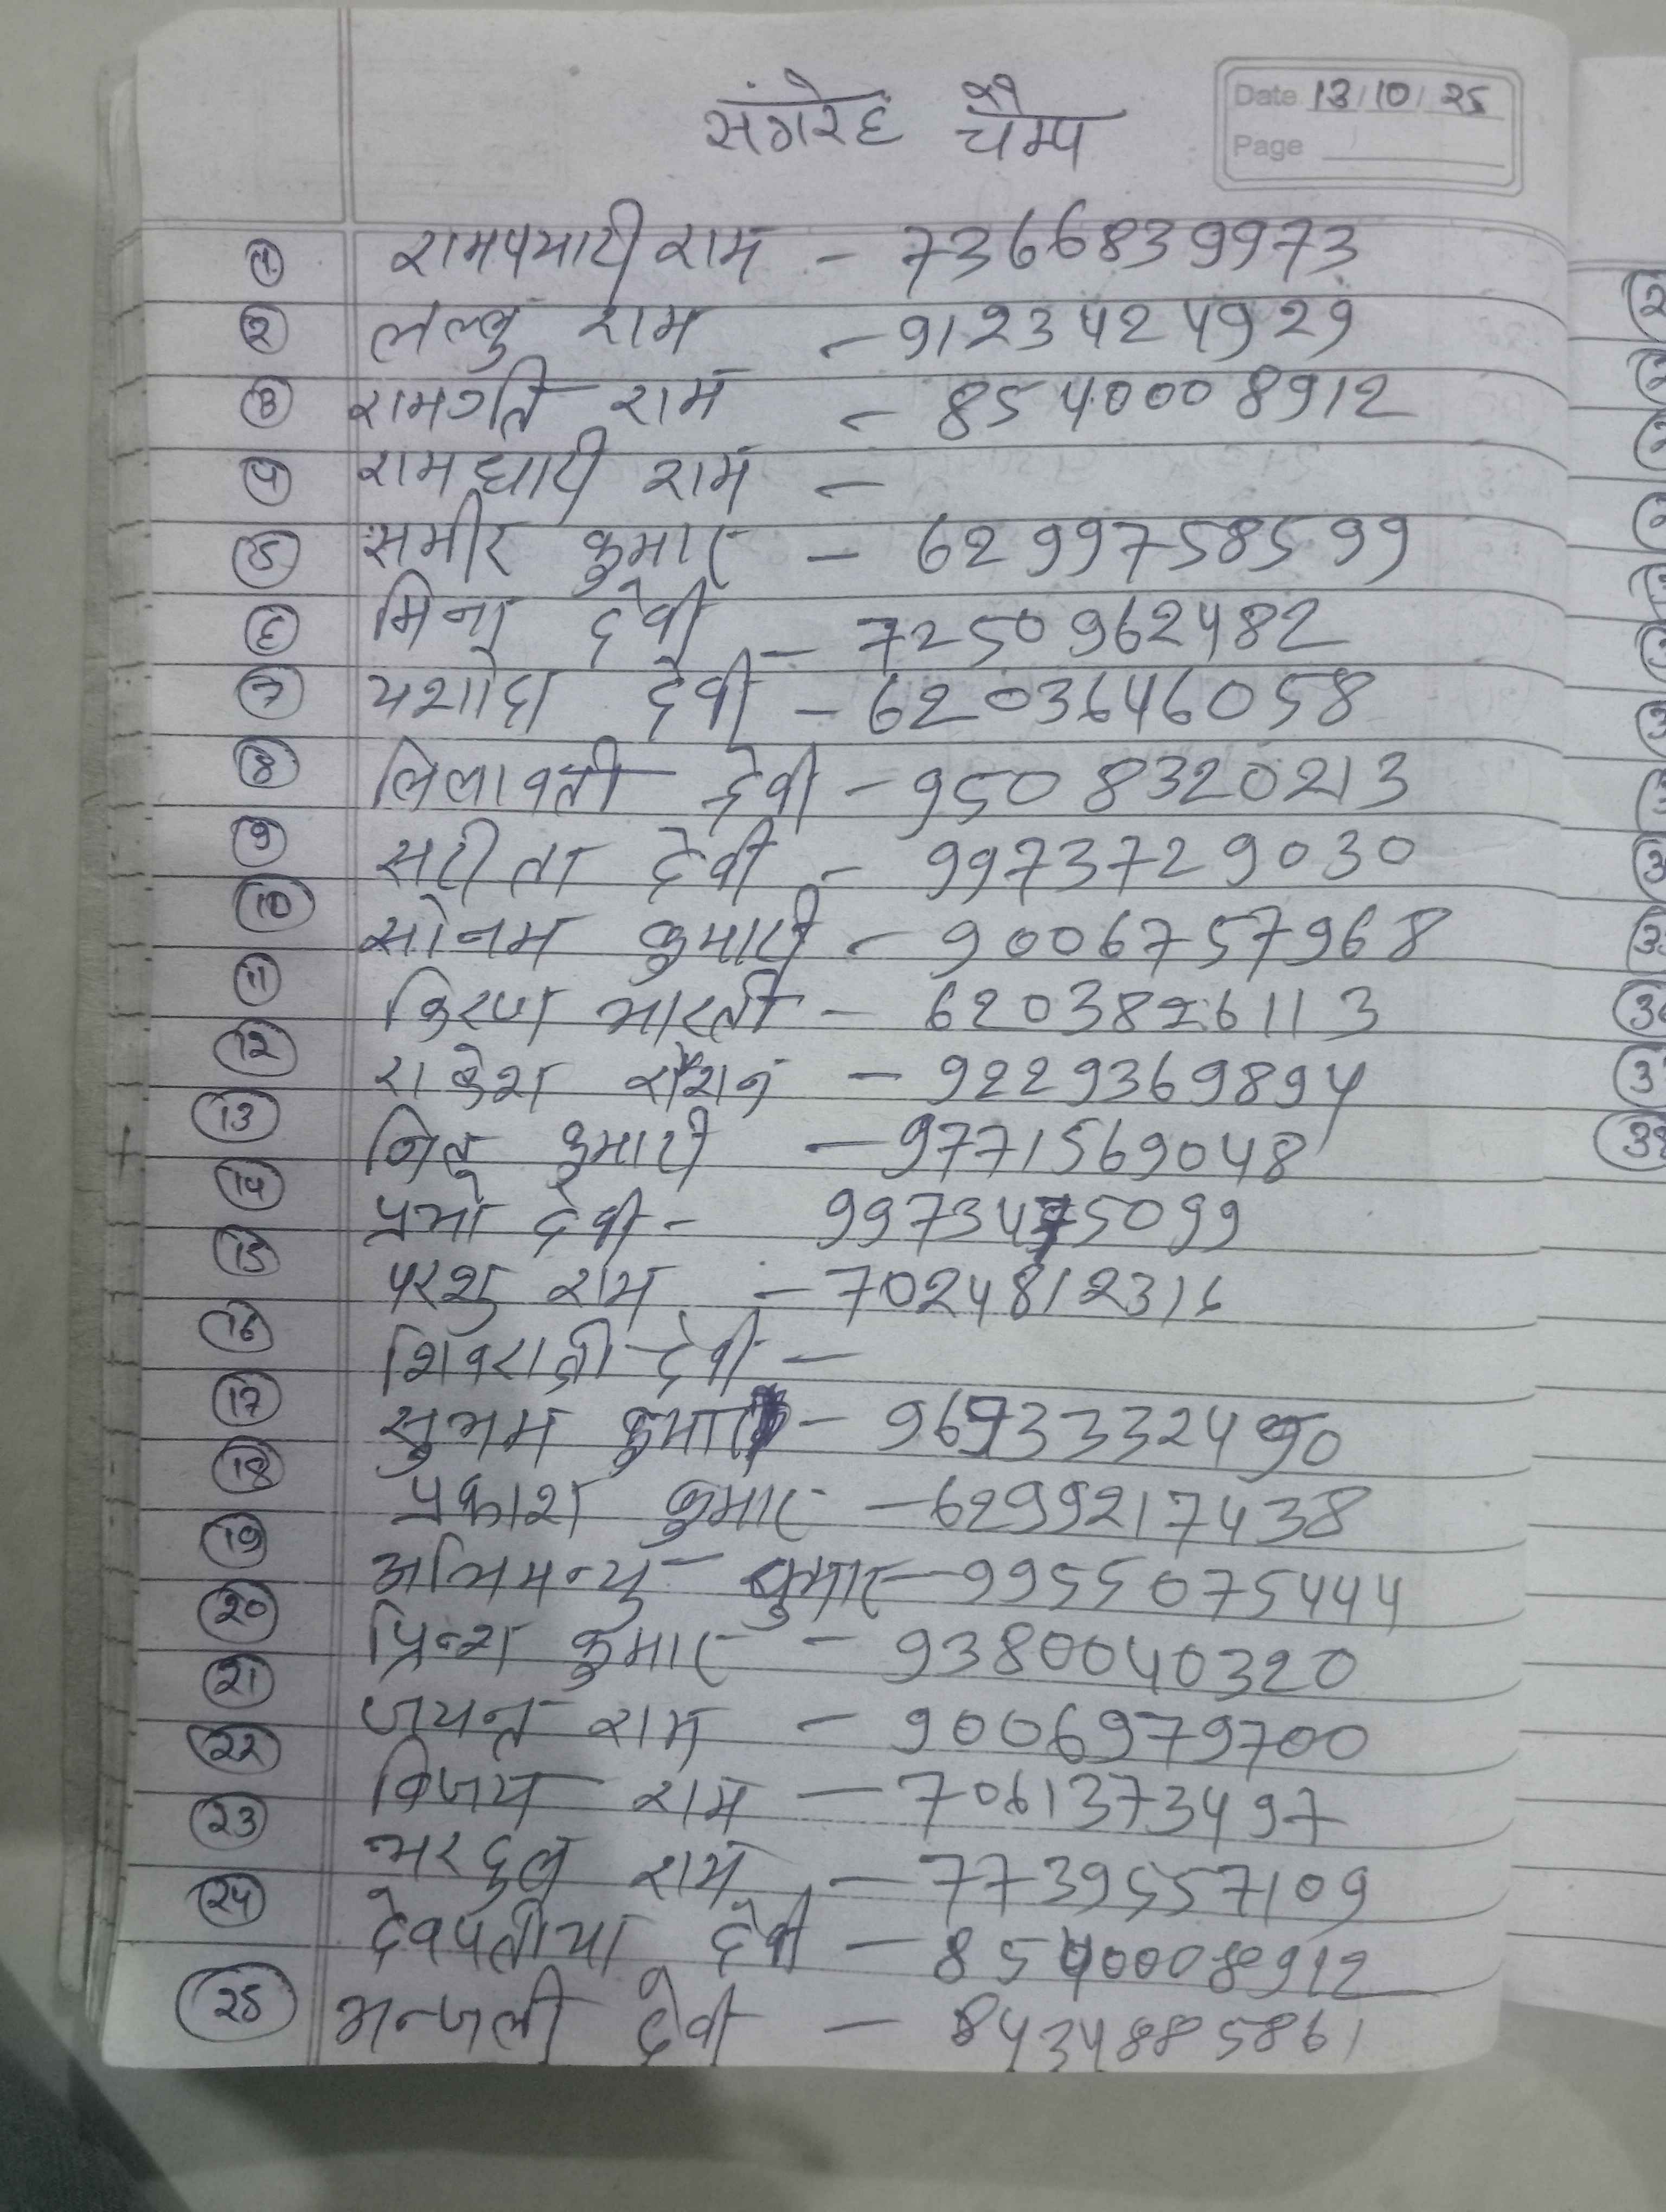 संगरेह चैम्प
Date 13/10/25
Page
1 रामपयारी राम - 7366839973
2 लल्लु राम - 9123424929
3 रामगति राम - 8540008912
4 रामधारी राम -
5 समीर कुमार - 6299758599
6 मिना देवी - 7250962482
7 यशोदा देवी - 6203646058
8 लिलावती देवी - 9508320213
9 सरीता देवी - 9973729030
10 सोनम कुमारी - 9006757968
11 किरण भारती - 6203826113
12 राकेश रौशन - 9229369894
13 नितु कुमारी - 9771569048
14 प्रभा देवी - 9973475099
15 परशु राम - 7024812316
16 शिवराती देवी -
17 सुभम कुमार - 9693332490
18 प्रकाश कुमार - 6299217438
19 अभिमन्यु कुमार - 9955075444
20 प्रिन्श कुमार - 9380040320
21 जयन्त राम - 9006979700
22 विजय राम - 7061373497
23 भरदुल राम - 7739557109
24 देवपतीया देवी - 8540008912
25 मन्जली देवी - 8434885861